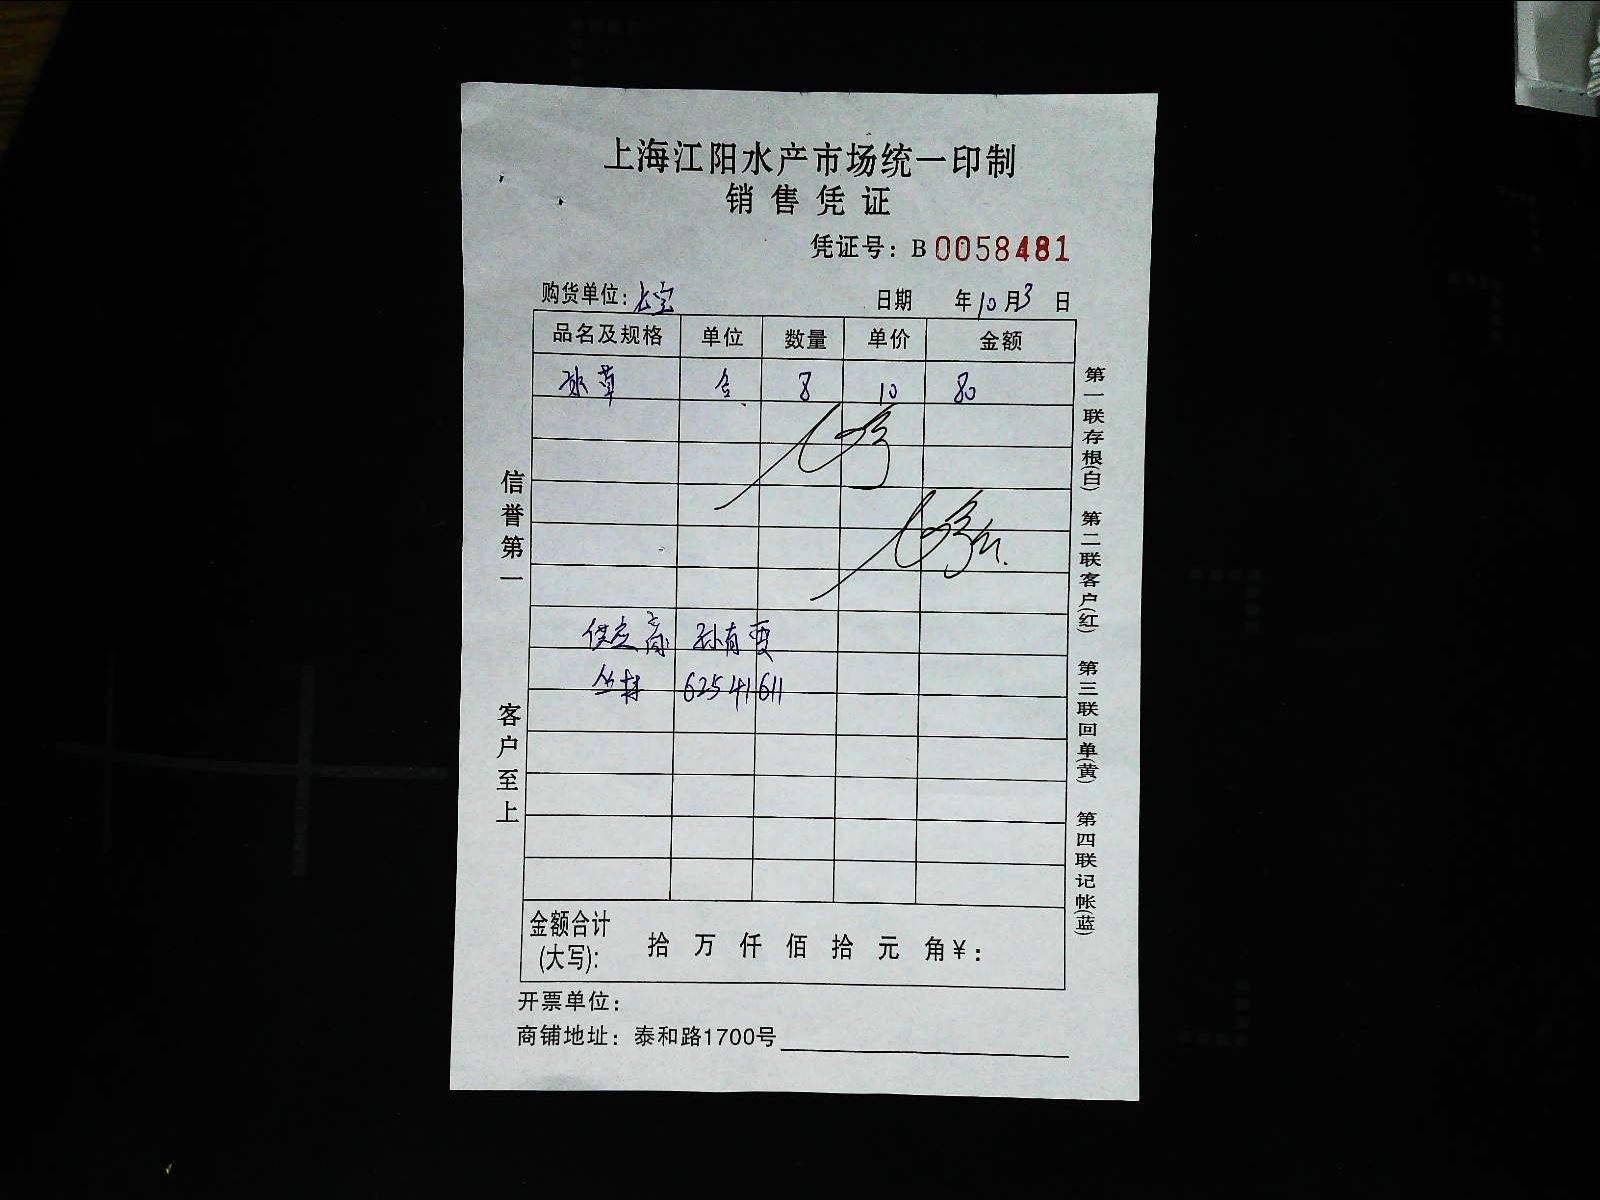 上海江阳水产市场统一印制
销售凭证
凭证号: B 0058481
购货单位: 长宝 日期 年10月3日
品名及规格 单位 数量 单价 金额
水草 8 10 80
供应商 孙有
丛林 62541611
金额合计(大写): 拾 万 仟 佰 拾 元 角 ¥:
开票单位:
商铺地址: 泰和路1700号
信誉第一
客户至上
第一联存根(白) 第二联客户(红) 第三联回单(黄) 第四联记帐(蓝)